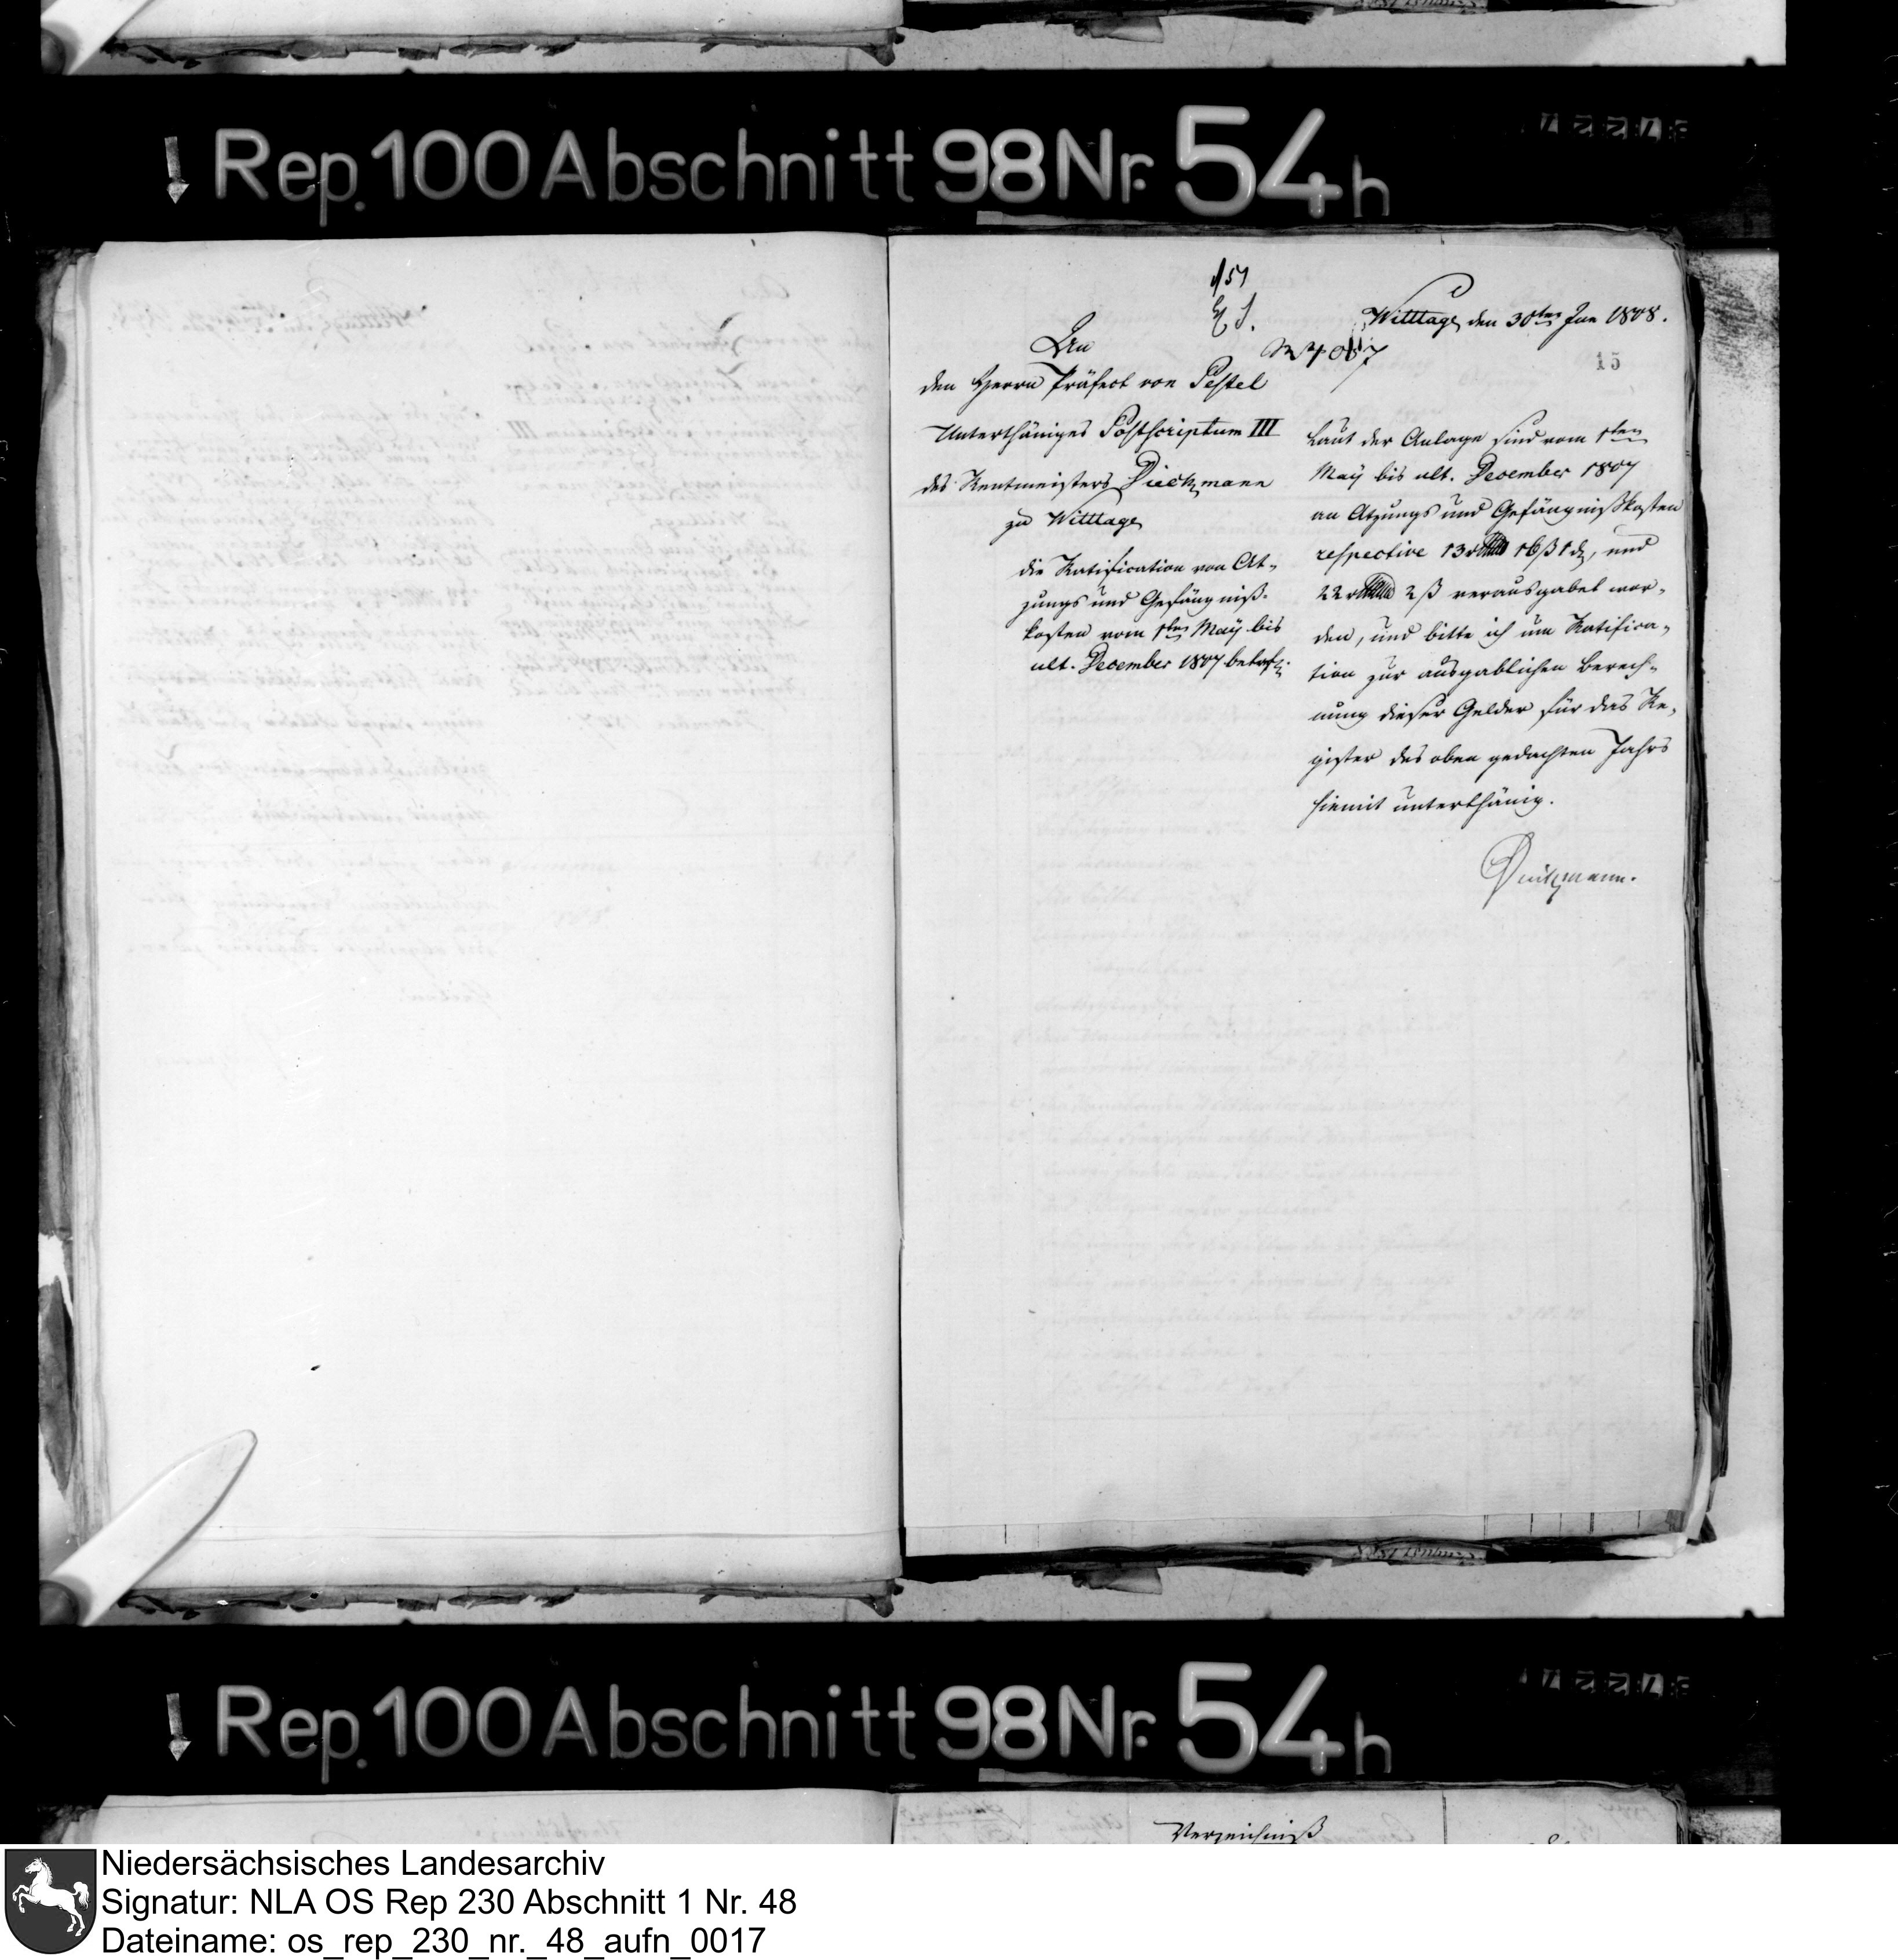 Rep. 100 Abschnitt 98 Nr. 54 h
Wittlage, den 30ten Jan 1808.
15
An
den Herrn Präfect von Pestel
Unterthäniges Postscriptum III
des Rentmeisters Dieckmann
zu Wittlage
die Ratification von At-
zungs und Gefängniß-
kosten vom 1ten May bis
ult. December 1807 betref.
Laut der Anlage sind vom 1ten
May bis ult. December 1807
an Atzungs und Gefängnißkosten
respective 13 16 ß 1 d, und
22 2 ß verausgabet wor-
den, und bitte ich um Ratifica-
tion zur ausgablichen Berech-
nung dieser Gelder für das Re-
gister des oben gedachten Jahrs
hiemit unterthänig.
Dieckmann.
Rep. 100 Abschnitt 98 Nr. 54 h
Verzeichniß
Niedersächsisches Landesarchiv
Signatur: NLA OS Rep 230 Abschnitt 1 Nr. 48
Dateiname: os_rep_230_nr._48_aufn_0017